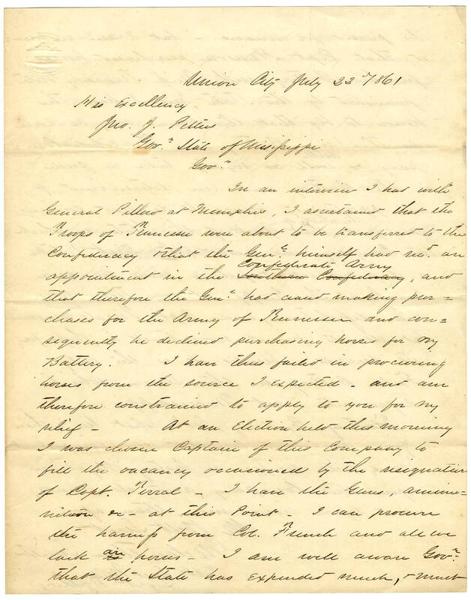 Union City July 22nd 1861
His Excellency
Jno. J. Pettus
Govr. State of Missippi
Govr.
In an interview I had with
General Pillow at Memphis, I ascertained that the
Troops of Tennessee were about to be transferred to the
Confederacy & that the Genl. himself had not an
appointment in the Confederate Army ~~Southern Confederacy~~, and
that therefore the Genl. has ceased making pur-
chases for the Army of Tennessee and con-
sequently he declined purchasing horses for my
Battery. I have thus failed in procuring
horses from the source I expected - and am
therefore constrained to apply to you for my
relief - At an Election held this morning
I was chosen Captain of this Company to
fill the vacancy occasioned by the resignation
of Capt. Terral - I have the Guns, ammu-
nition &c - at this Point - I can procure
the harness from Col. French and all we
lack are horses - I am well aware Govr.
that the State has expended much, & must